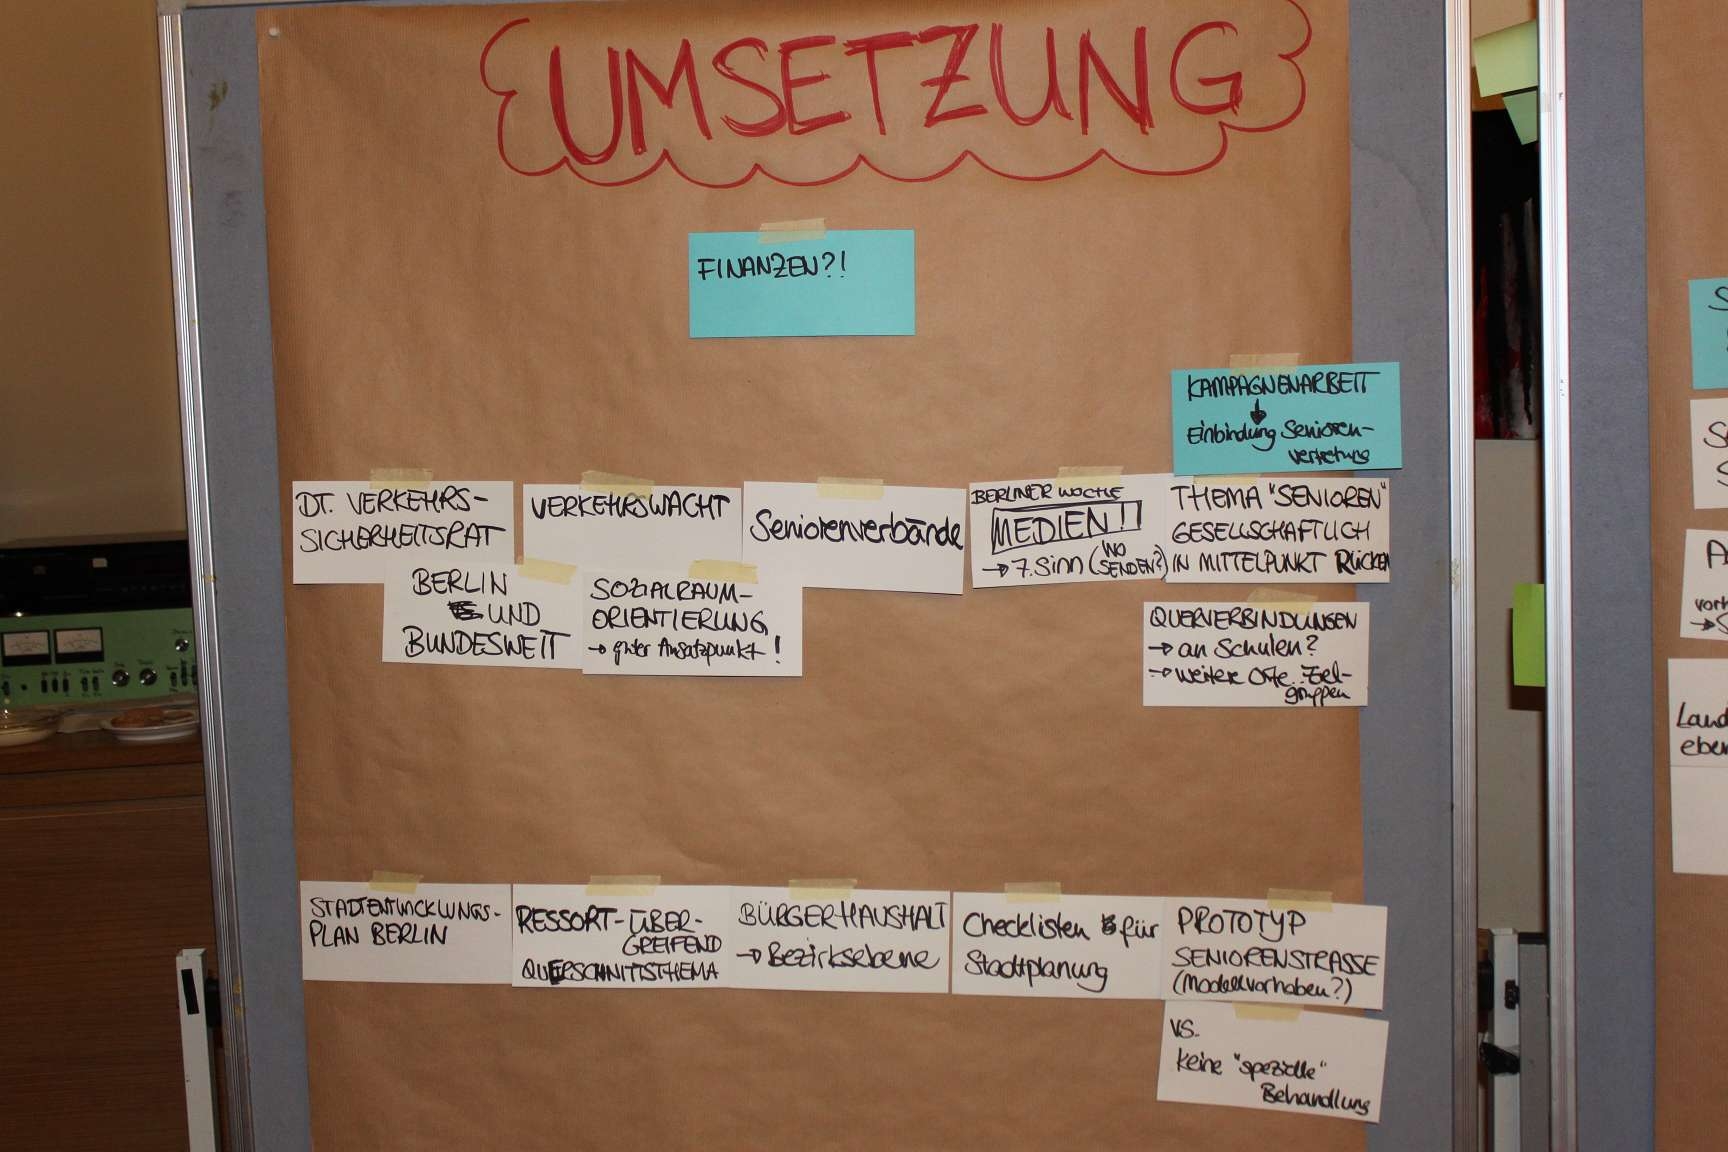 UMSETZUNG
FINANZEN?!
KAMPAGNENARBEIT
↓
Einbindung Senioren-
vertretung
DT. VERKEHRS-
SICHERHEITSRAT
VERKEHRSWACHT
Seniorenverbände
BERLINER WOCHE
MEDIEN!!
→ 7. Sinn (WO
SENDEN?)
THEMA "SENIOREN"
GESELLSCHAFTLICH
IN MITTELPUNKT RÜCKEN
BERLIN
UND
BUNDESWEIT
SOZIALRAUM-
ORIENTIERUNG
→ guter Ansatzpunkt!
QUERVERBINDUNGEN
→ an Schulen?
→ weitere Orte. Ziel-
gruppen
STADTENTWICKLUNGS-
PLAN BERLIN
RESSORT-ÜBER-
GREIFEND
QUERSCHNITTSTHEMA
BÜRGERHAUSHALT
→ Bezirksebene
Checklisten für
Stadtplanung
PROTOTYP
SENIORENSTRASSE
(Modellvorhaben?)
VS.
keine "spezielle"
Behandlung
vorh
Land
eben